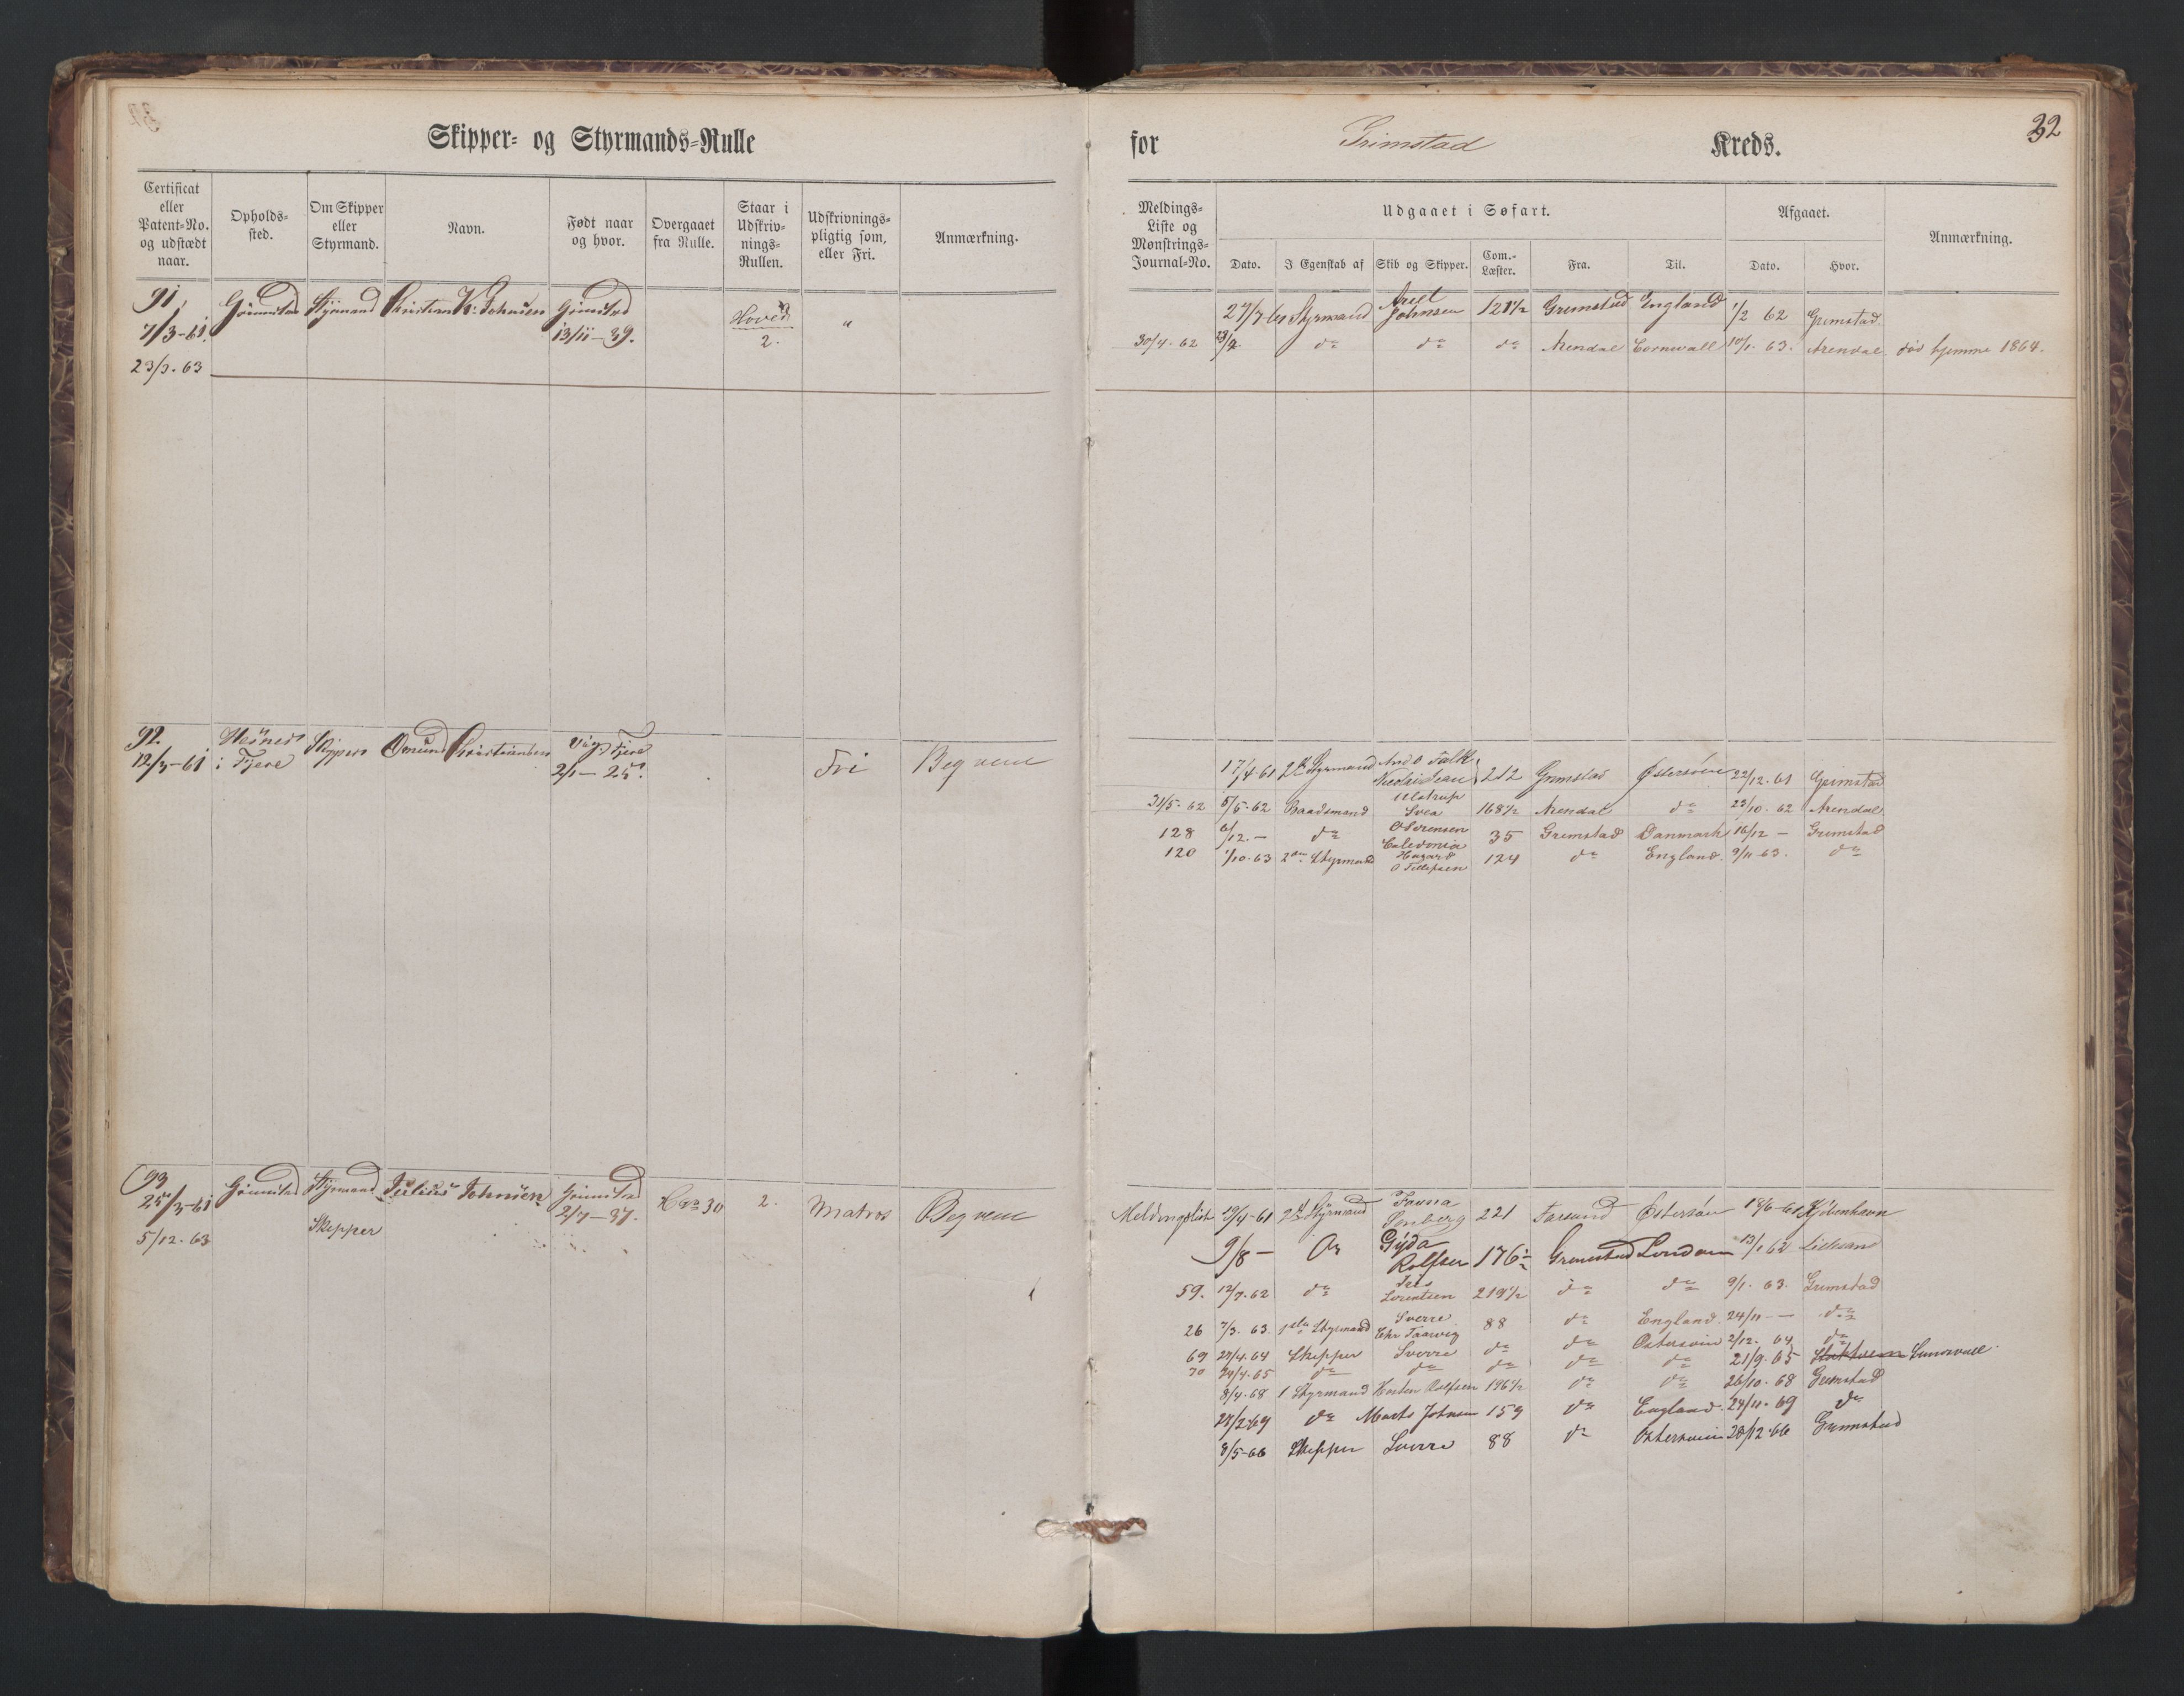 Skipper- og Styrmands-Rulle
for Grimstad Kreds.
32
Certificat eller Patent-No. og udstædt naar.
Opholds-sted.
Om Skipper eller Styrmand.
Navn.
Født naar og hvor.
Overgaaet fra Rulle.
Staar i Udskriv-nings-Rullen.
Udskrivnings-pligtig som, eller Fri.
Anmærkning.
Meldings-Liste og Mønstrings-Journal-No.
Udgaaet i Søfart.
Dato.
I Egenskab af
Skib og Skipper.
Com.-Læster.
Fra.
Til.
Afgaaet.
Dato.
Hvor.
Anmærkning.
91 Grimstad Styrmand Kristian K. Johnsen Grimstad Hoved
7/3-61. 13/11-39. 2. "
23/3. 63
27/7 61 Styrmand Axel Johnsen 121 1/2 Grimstad England 1/2 62 Grimstad.
30/4. 62 do do do Arendal Cornwall 10/1. 63. Arendal. død hjemme 1864.
92. Hesnes Skipper Omund Christiansen Fjere Fri Beqvem
12/3-61 i Fjere 2/1-25.
17/4-61 2d Styrmand Nicolai Jean 212 Grimstad Østersøen 22/12. 61 Grimstad
Ulstrup
31/5. 62 5/5. 62 Baadsmand Svea 168 1/2 Arendal do 23/10. 62 Arendal
O Sørensen
128 6/12. - do Caledonia 35 Grimstad Danmark 16/12 - Grimstad
120 1/10. 63 2den Styrmand Hazard 124 do England. 9/11 63. do
O Tellefsen
93 Grimstad Styrmand Julius Johnsen Grimstad 30 2. Matros Beqvem
25/3-61 2/7-37.
5/12. 63 Skipper
Meldingslist 19/4-61 2d Styrmand Fauna 221 Farsund Østersøen 18/6-61 Kjøbenhavn
9/8 - Gyda Rolfsen 176 1/2 Grimstad London 13/1 62 Lillesand
59. 12/7. 62 do Iris Lorentsen 219 1/2 do do 9/1. 63. Grimstad
26 7/3. 63. 1ste Styrmand Sverre 88 do England. 24/11 - do
Chr Taarvig
69 27/4. 64 Skipper Sverre do do Østersøen 2/12. 64 do
70 24/4. 65 do do do do do 21/9. 65 Stockholm Sundsvall
8/4. 68 1 Styrmand Rolfsen 196 1/2 do do 26/10. 68 Grimstad
27/2-69 do Johnsen 159 do England. 24/11. 69 do
8/5-66 Skipper Sverre 88 do Østersøen 28/12-66 Grimstad